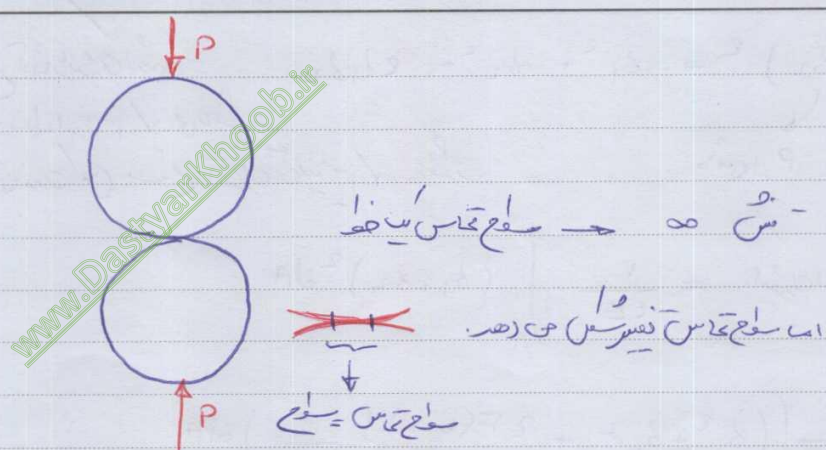 P
www.DastyarKhoob.ir
تنش ∞ → سطح تماس یک خط
اما سطح تماس تغییر شکل می دهد.
سطح تماس یک سطح
P